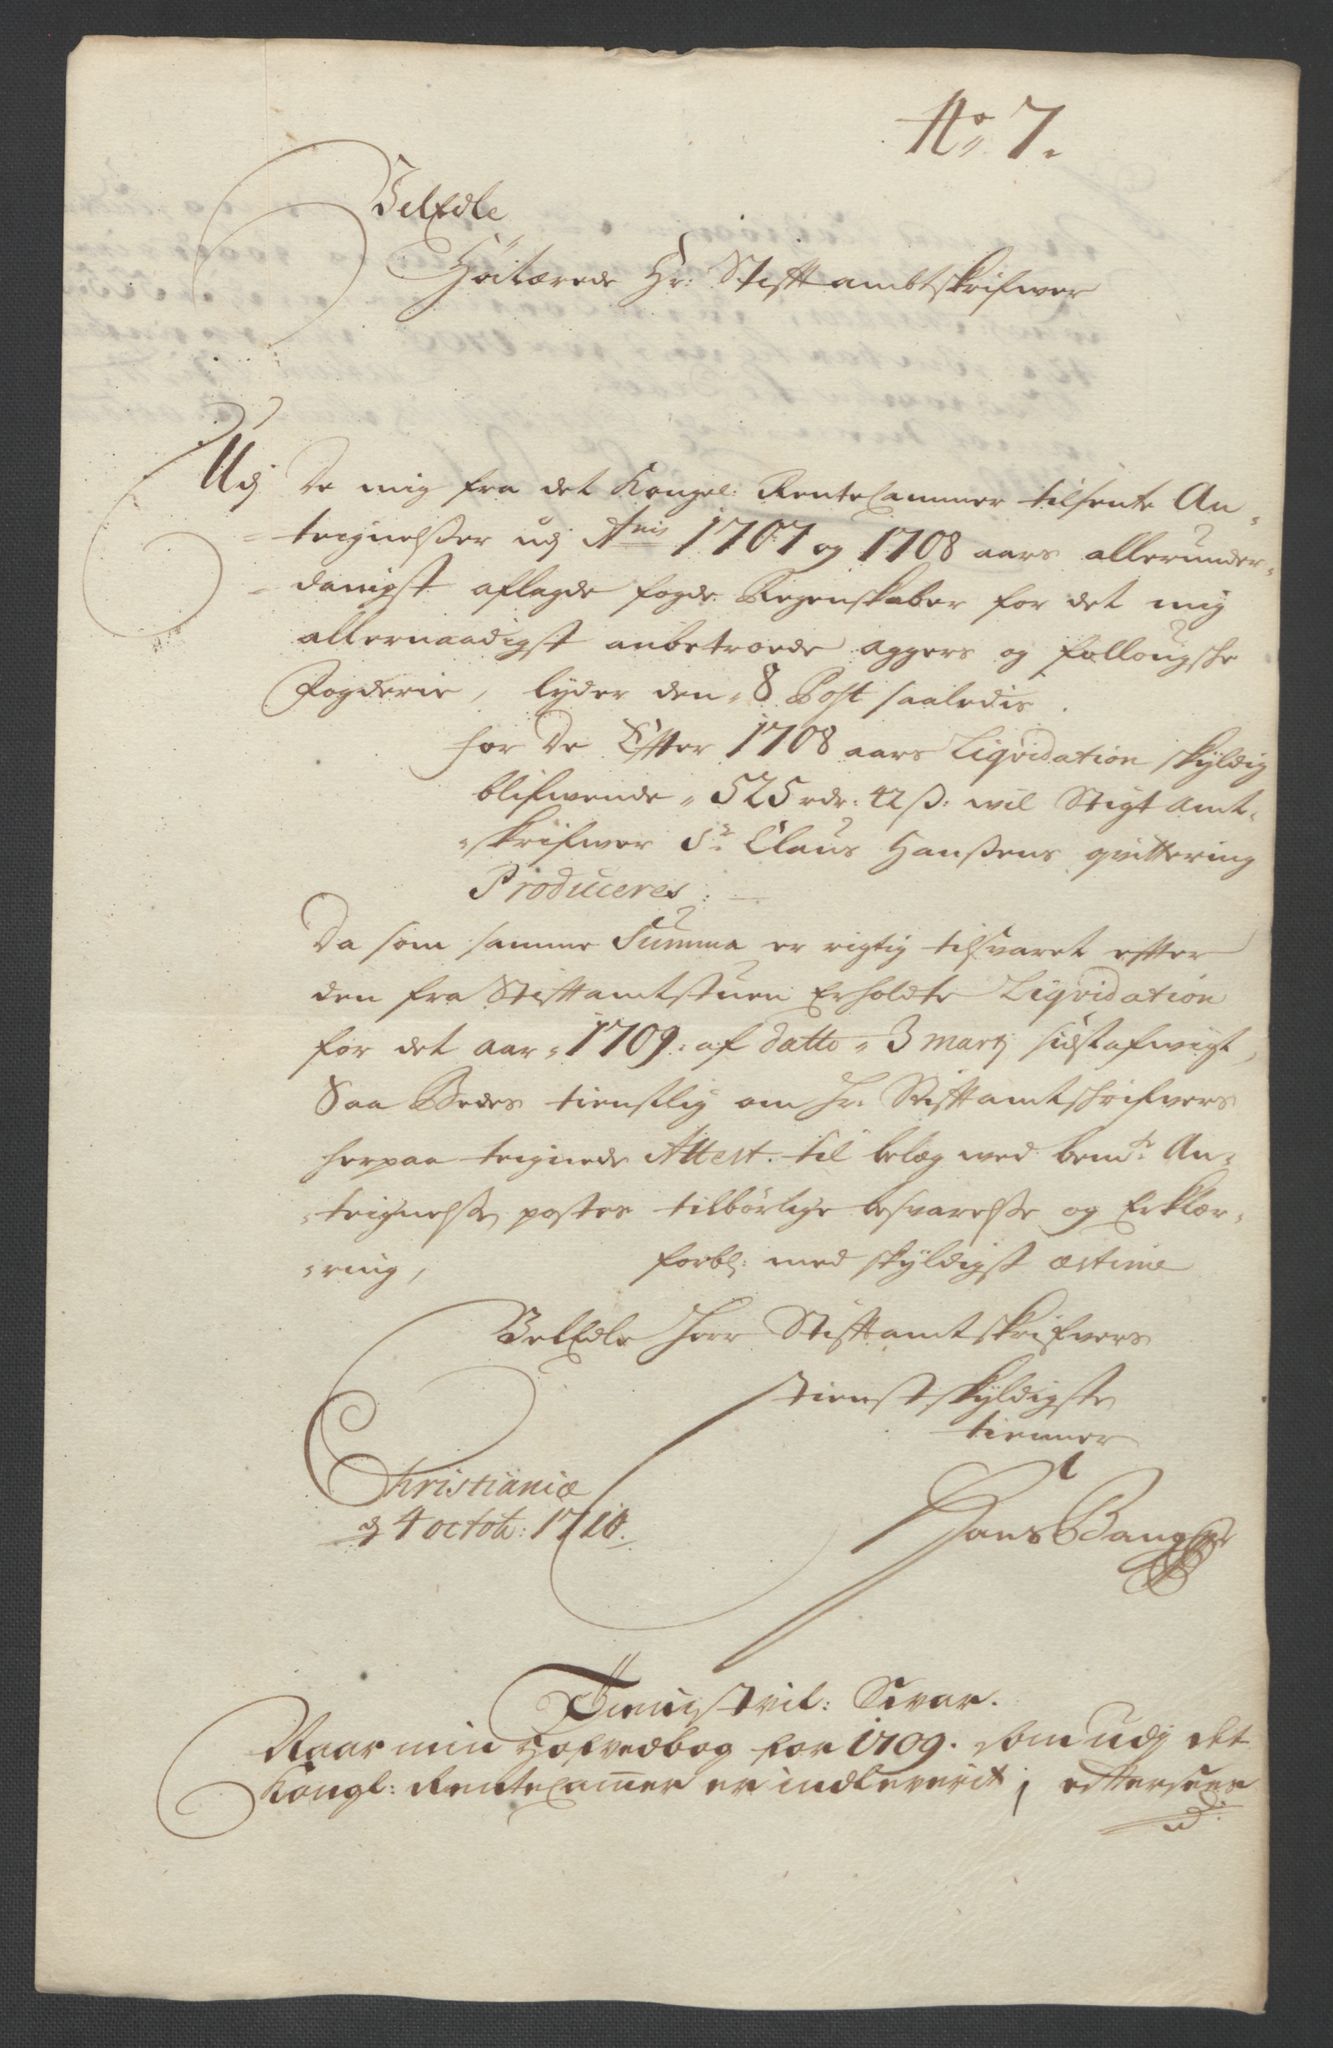 No 7.
Velædle
Høitærede Hr: Stiftambtskrifwer
Udj De mig fra det Kongel: RenteCammer tilsente An-
teignelsser udj Anis 1707 og 1708 aars allerunder-
danigst aflagde fogde Regenskaber for det mig
allernaadigst anbetroede Aggers og follougsche
Fogderie, lyder den 8 Post saaledis.
For De Effter 1708 aars Liqvidation skyldig
blifwende 525 rdr: 42 ß: wil Stigt Amt-
skrifwer Sr Claus Hanßens qvittering
Produceres:
Da som samme Summa er rigtig tilsvaret effter
den fra Stifftamtstuen Erholdte Liqvidation
for det aar 1709. af datto 3 martj sidstafwigt,
Saa Bedes tienstlig om Hr: Stifftamtschrifvers
herpaa teignede Attest. til belæg ved bemte An-
teignelsse postes tilbørlige besvarelsse og Erklær-
ring, forbl: med skyldigst æstime
Velædle Herr Stifftamtskrifvers
tienstskyldigste
tienner
Christianiæ
d 4 octobr: 1710.
Hans Bang
Tienistvil: Svar.
Naar min Hofvedbog for 1709. som udj det
Kongl: RenteCamer er indleverit, effterseer